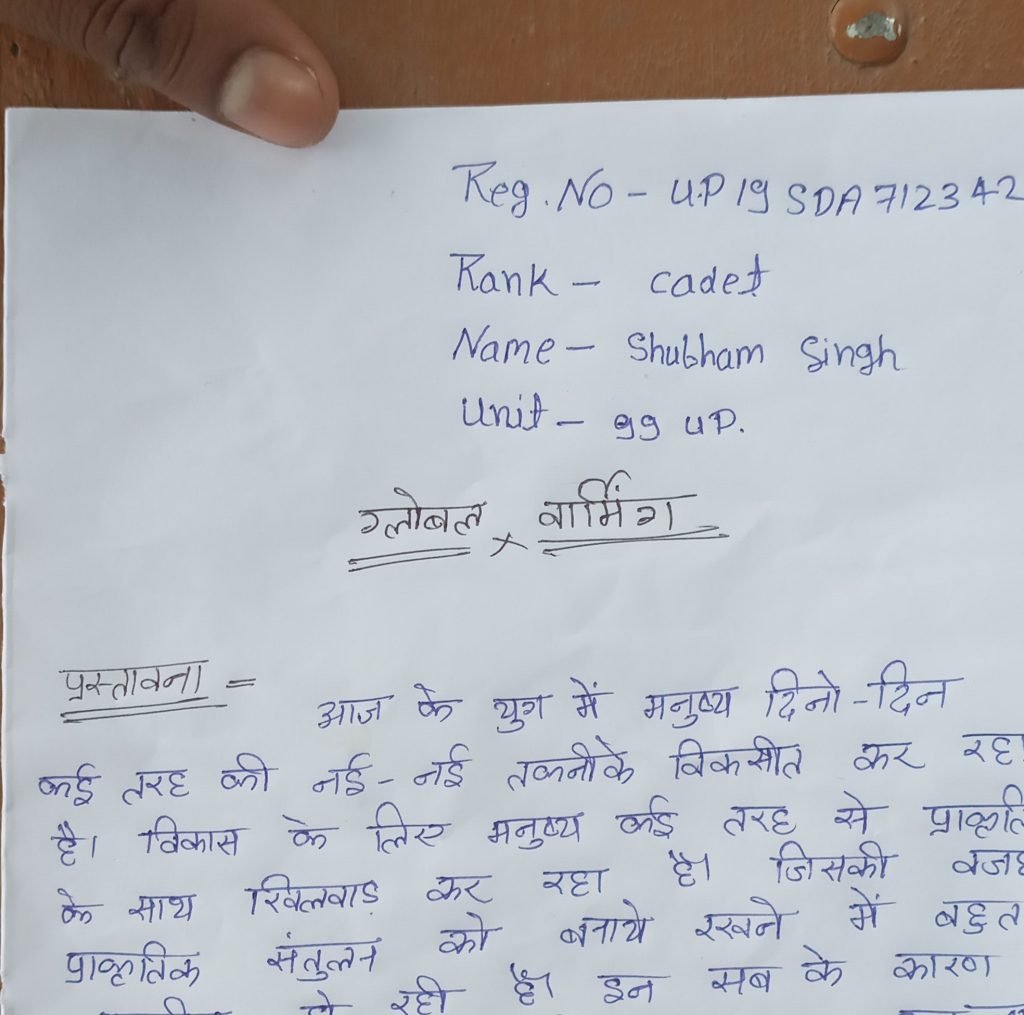 Reg. No - U.P 19 SDA 712342
Rank - cadet
Name - Shubham Singh
Unit - 99 UP.
ग्लोबल वार्मिंग
प्रस्तावना =
आज के युग में मनुष्य दिनो-दिन
कई तरह की नई-नई तकनीके विकसीत कर रहा
है। विकास के लिए मनुष्य कई तरह से
के साथ खिलवाड़ कर रहा है। जिसकी वजह
प्राकृतिक संतुलन को बनाये रखने में बहुत
हो रही है। इन सब के कारण